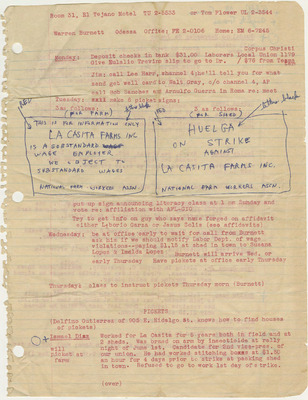 Room 31, El Tejano Hotel TU 2-5355 or Tom Flower UL 2-3544
Warren Burnett Odessa Office: FE 2-0106 Home: EM 6-7845
Corpus Christi
Sunday: Deposit checks in bank $31.00 Laborers Local Union 1179
Give Eulalio Trevino slip to go to Dr. / $78 from Texas
Jim: call Lee Herz, channel 4
send get well card to Walt Gray, c/o channel 4, AF
call Bob Sanchez and Arnulfo Guerra in Roma re: meet
Tuesday: Wait make 6 picket signs:
3 as follows: 3 as follows:
RED
(FOR FARM)
other black
THIS IS FOR INFORMATION ONLY
LA CASITA FARMS INC
IS A SUBSTANDARD
WAGE EMPLOYER
WE OBJECT TO
SUBSTANDARD WAGES
NATIONAL FARM WORKERS ASSN.
RED
(FOR SHED)
other black
HUELGA
ON STRIKE
AGAINST
LA CASITA FARMS INC.
NATIONAL FARM WORKERS ASSN.
put up sign announcing literacy class at 1 on Sunday and
vote re: affiliation with AFL-CIO
Try to get info on guy who says name forged on affidavit
either Liborio Garza or Jesus Solis (see affidavits)
Wednesday: be at office early to wait for call from Burnett
ask him if we should notify Labor Dept. of wage
violations--paying $1.15 at shed in town to Susana
Lopez & Imelda Lopez Burnett will arrive Wed. or
early Thursday Have pickets at office early Thursday
Thursday: plan to instruct pickets Thursday morn (Burnett)
PICKETS
(Delfino Gutierrez of 905 E. Hidalgo St. knows how to find houses
of pickets)
Ismael Diaz Worked for La Casita for 5 years both in field and at
will 2 sheds. Was urned on arm by insecticide at rally
picket at night of June 1st. Candidate for 2nd vice-pres. of
farm our union. He had worked stitching boxes at $1.50
an hour for 4 days prior to strike at packing shed
in town. Refused to go to work 1st day of strike.
(over)